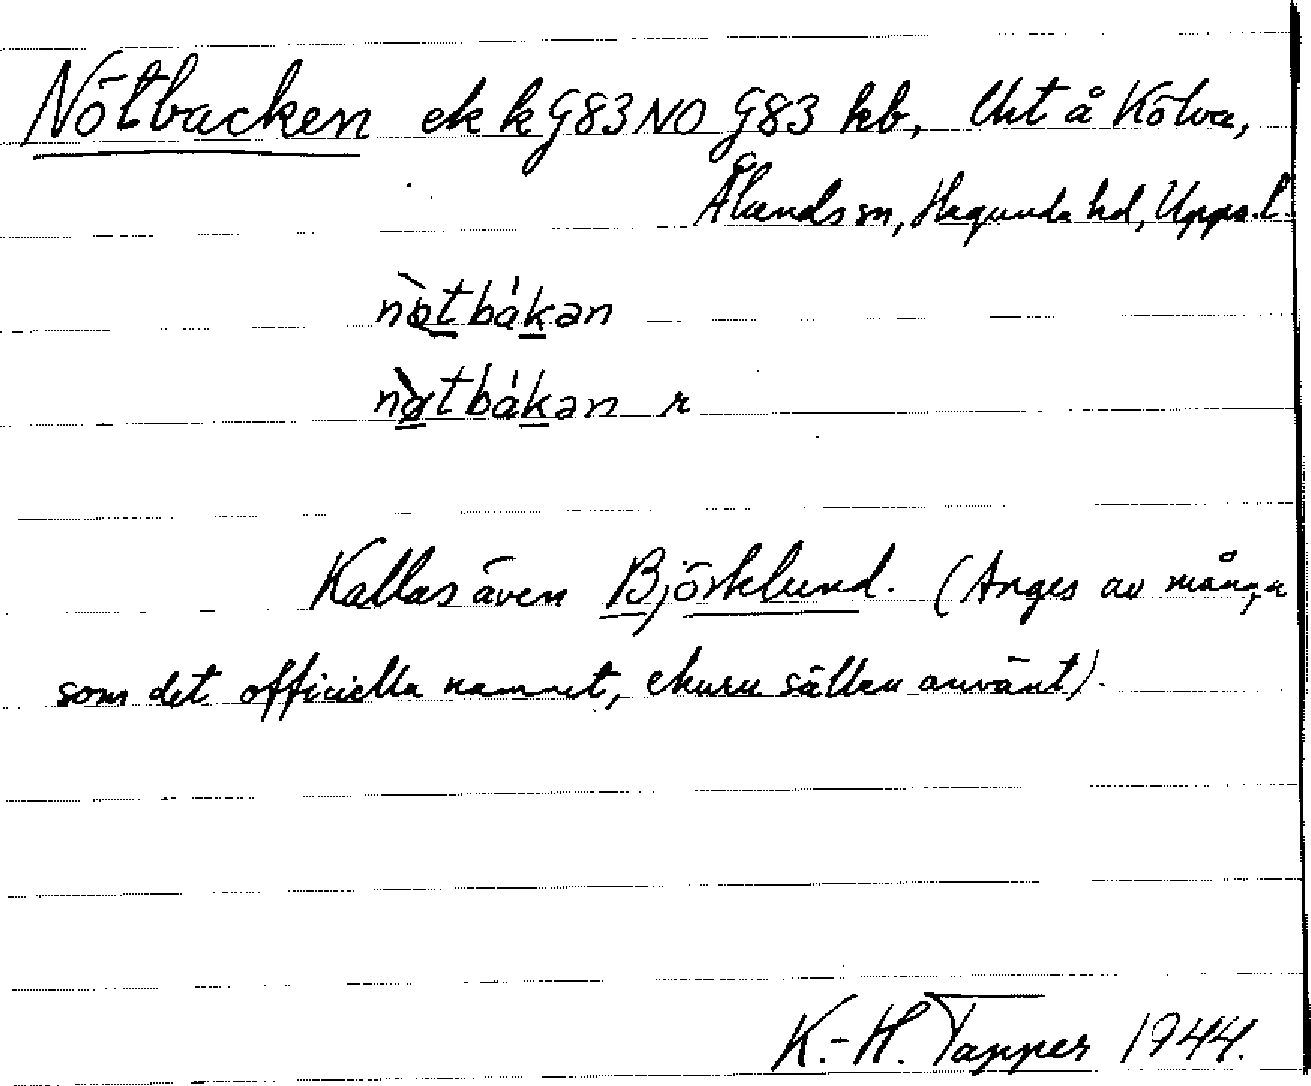 Nötbacken ek k G83NO G83 kb, Utit å Kölva,
Ålands sn, Hagunda hd, Upps. l.
nò̀tbák̠an
nàtbák̠an r
Kallas även Björklund. (Anges av många
som det officiella namnet, ehuru sällan använt).
K.-H. Tapper 1944.